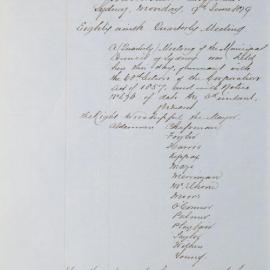 Sydney, Monday, 9th June 1879
Eighty ninth Quarterly Meeting
A Quarterly Meeting of the Municipal
Council of Sydney was held
on this day, pursuant with
the 62nd Section of the Corporation
Act of 1857, and with Notice
No 436 of date the 5th instant.
Present
The Right Worshipful the Mayor
Aldermen Chapman
Fowler
Harris
Kippax
Maze
Merriman
McElhone
Moore
O'Connor
Palmer
Playfair
Taylor
Withers
Young